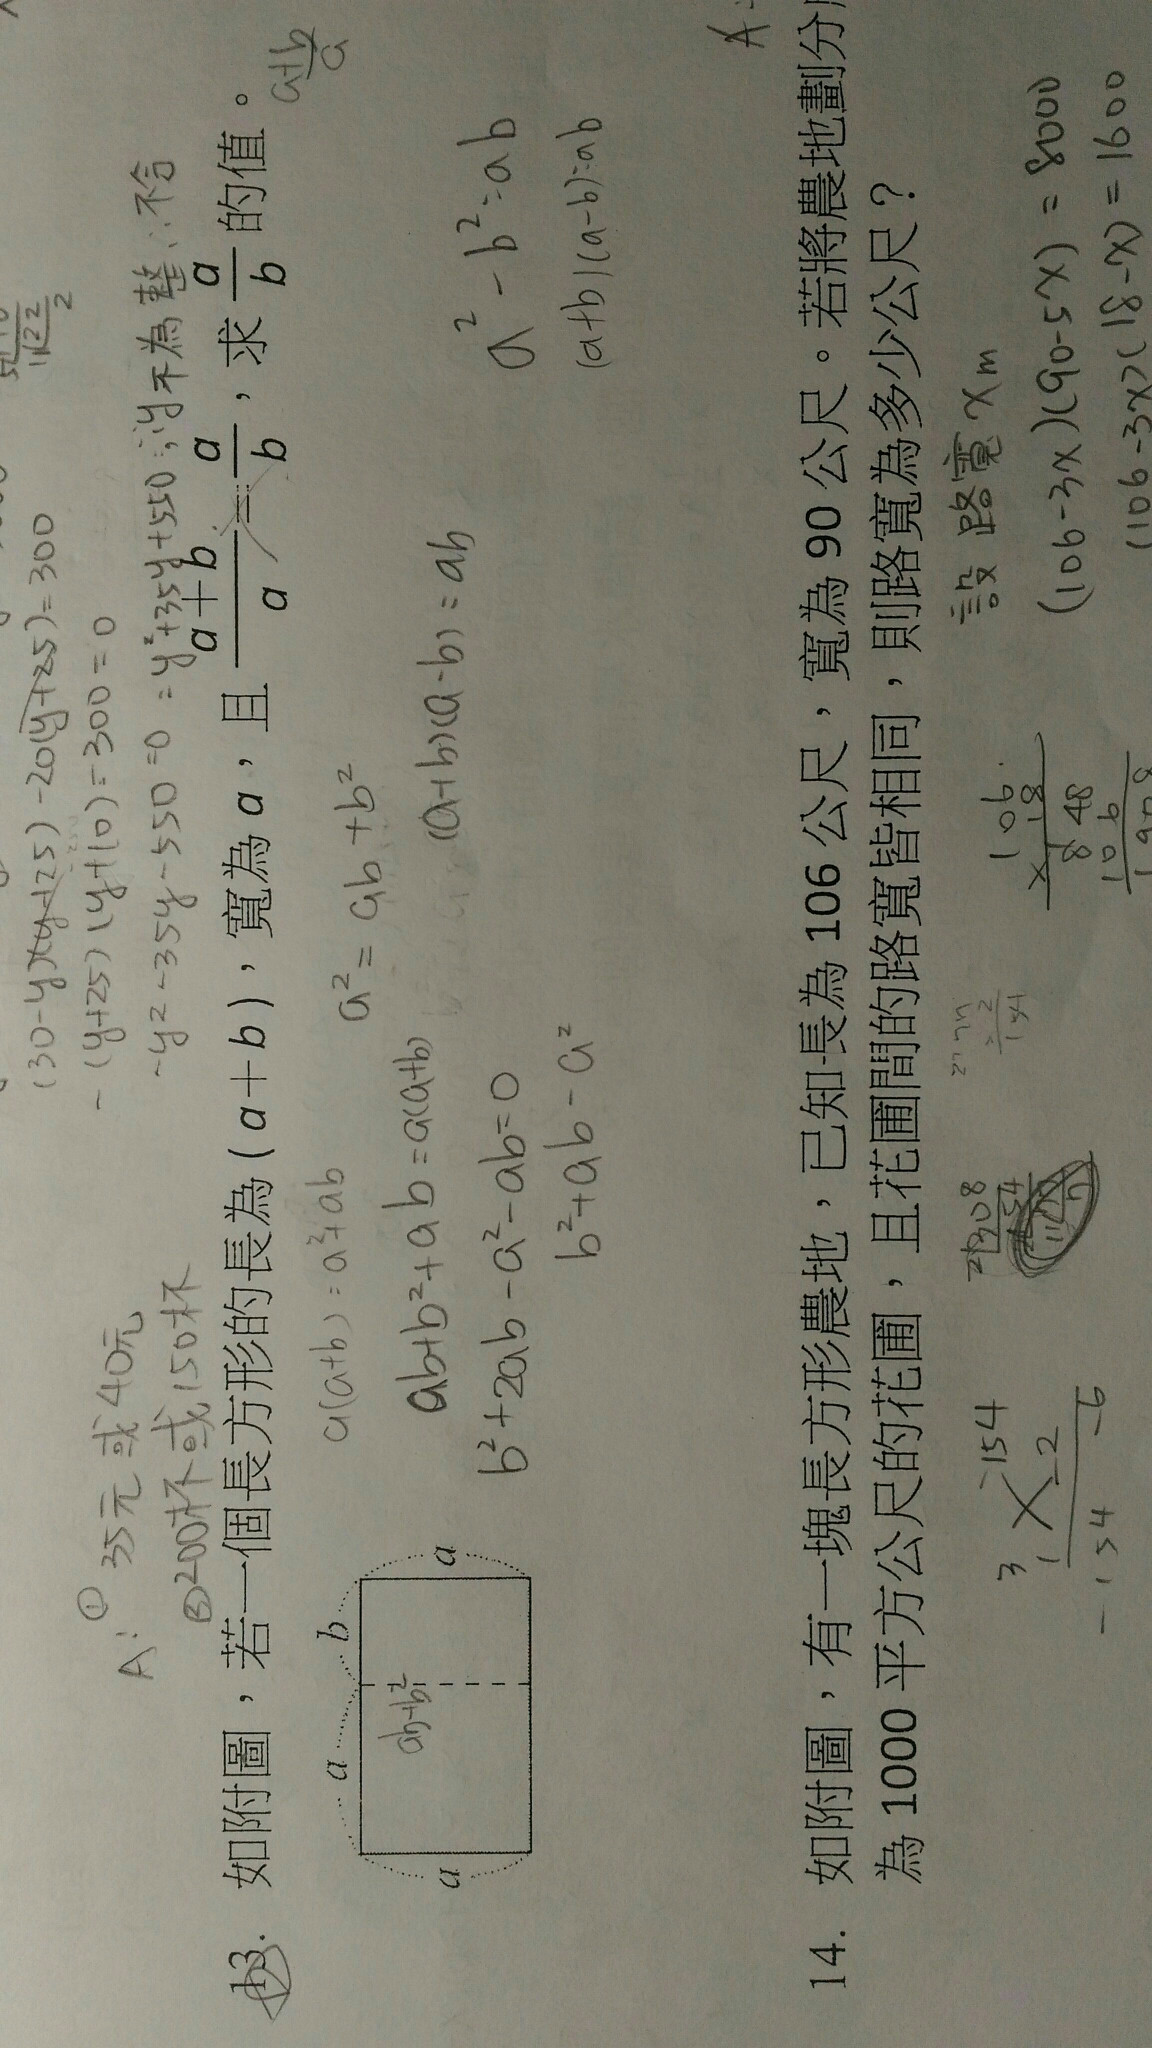 (30-y)(y+25)-20(y+25)=300
-(y+25)(y+10)=300=0
-y²-35y-550=0=y²+35y+550∴y不為整∴不合
A:①35元或40元
②200杯或150杯
13. 如附圖，若一個長方形的長為(a+b)，寬為a，且\frac{a+b}{a}=\frac{a}{b}，求\frac{a}{b}的值。
\frac{a+b}{a}
a
b
a
a
ab+b²
a(a+b)=a²+ab
a²=ab+b²
ab+b²+ab=a(a+b)
(a+b)(a-b)=ab
a²-b²=ab
b²+2ab-a²-ab=0
(a+b)(a-b)=ab
b²+ab-a²
A:
14. 如附圖，有一塊長方形農地，已知長為106公尺，寬為90公尺。若將農地劃分
為1000平方公尺的花圃，且花圃間的路寬皆相同，則路寬為多少公尺？
設路寬xm
(106-3x)(90-5x)=8000
(106-3x)(18-x)=1600
3 -154
1 -2
-154 -6
2 308
154
106
× 18
848
106